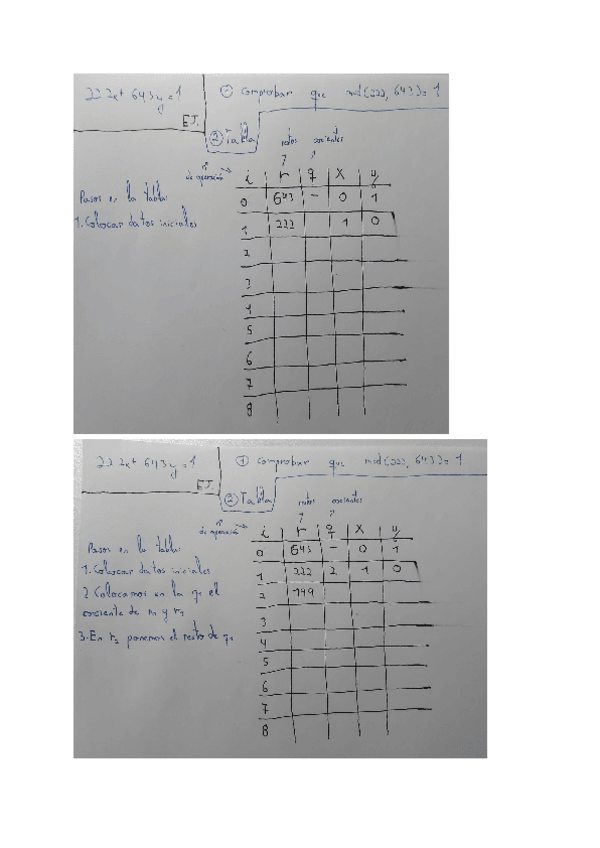 222x + 643y = 1
EJ.
① Comprobar que mcd(222, 643) = 1
② Tabla
restos cocientes
nº de operación → i r q x y
0 643 - 0 1
1 222 1 0
2
3
4
5
6
7
8
Pasos en la tabla:
1. Colocar datos iniciales
222x + 643y = 1
EJ.
① Comprobar que mcd(222, 643) = 1
② Tabla
restos cocientes
nº de operación → i r q x y
0 643 - 0 1
1 222 2 1 0
2 199
3
4
5
6
7
8
Pasos en la tabla:
1. Colocar datos iniciales
2. Colocamos en la q1 el
cociente de r0 y r1
3. En r2 ponemos el resto de q1